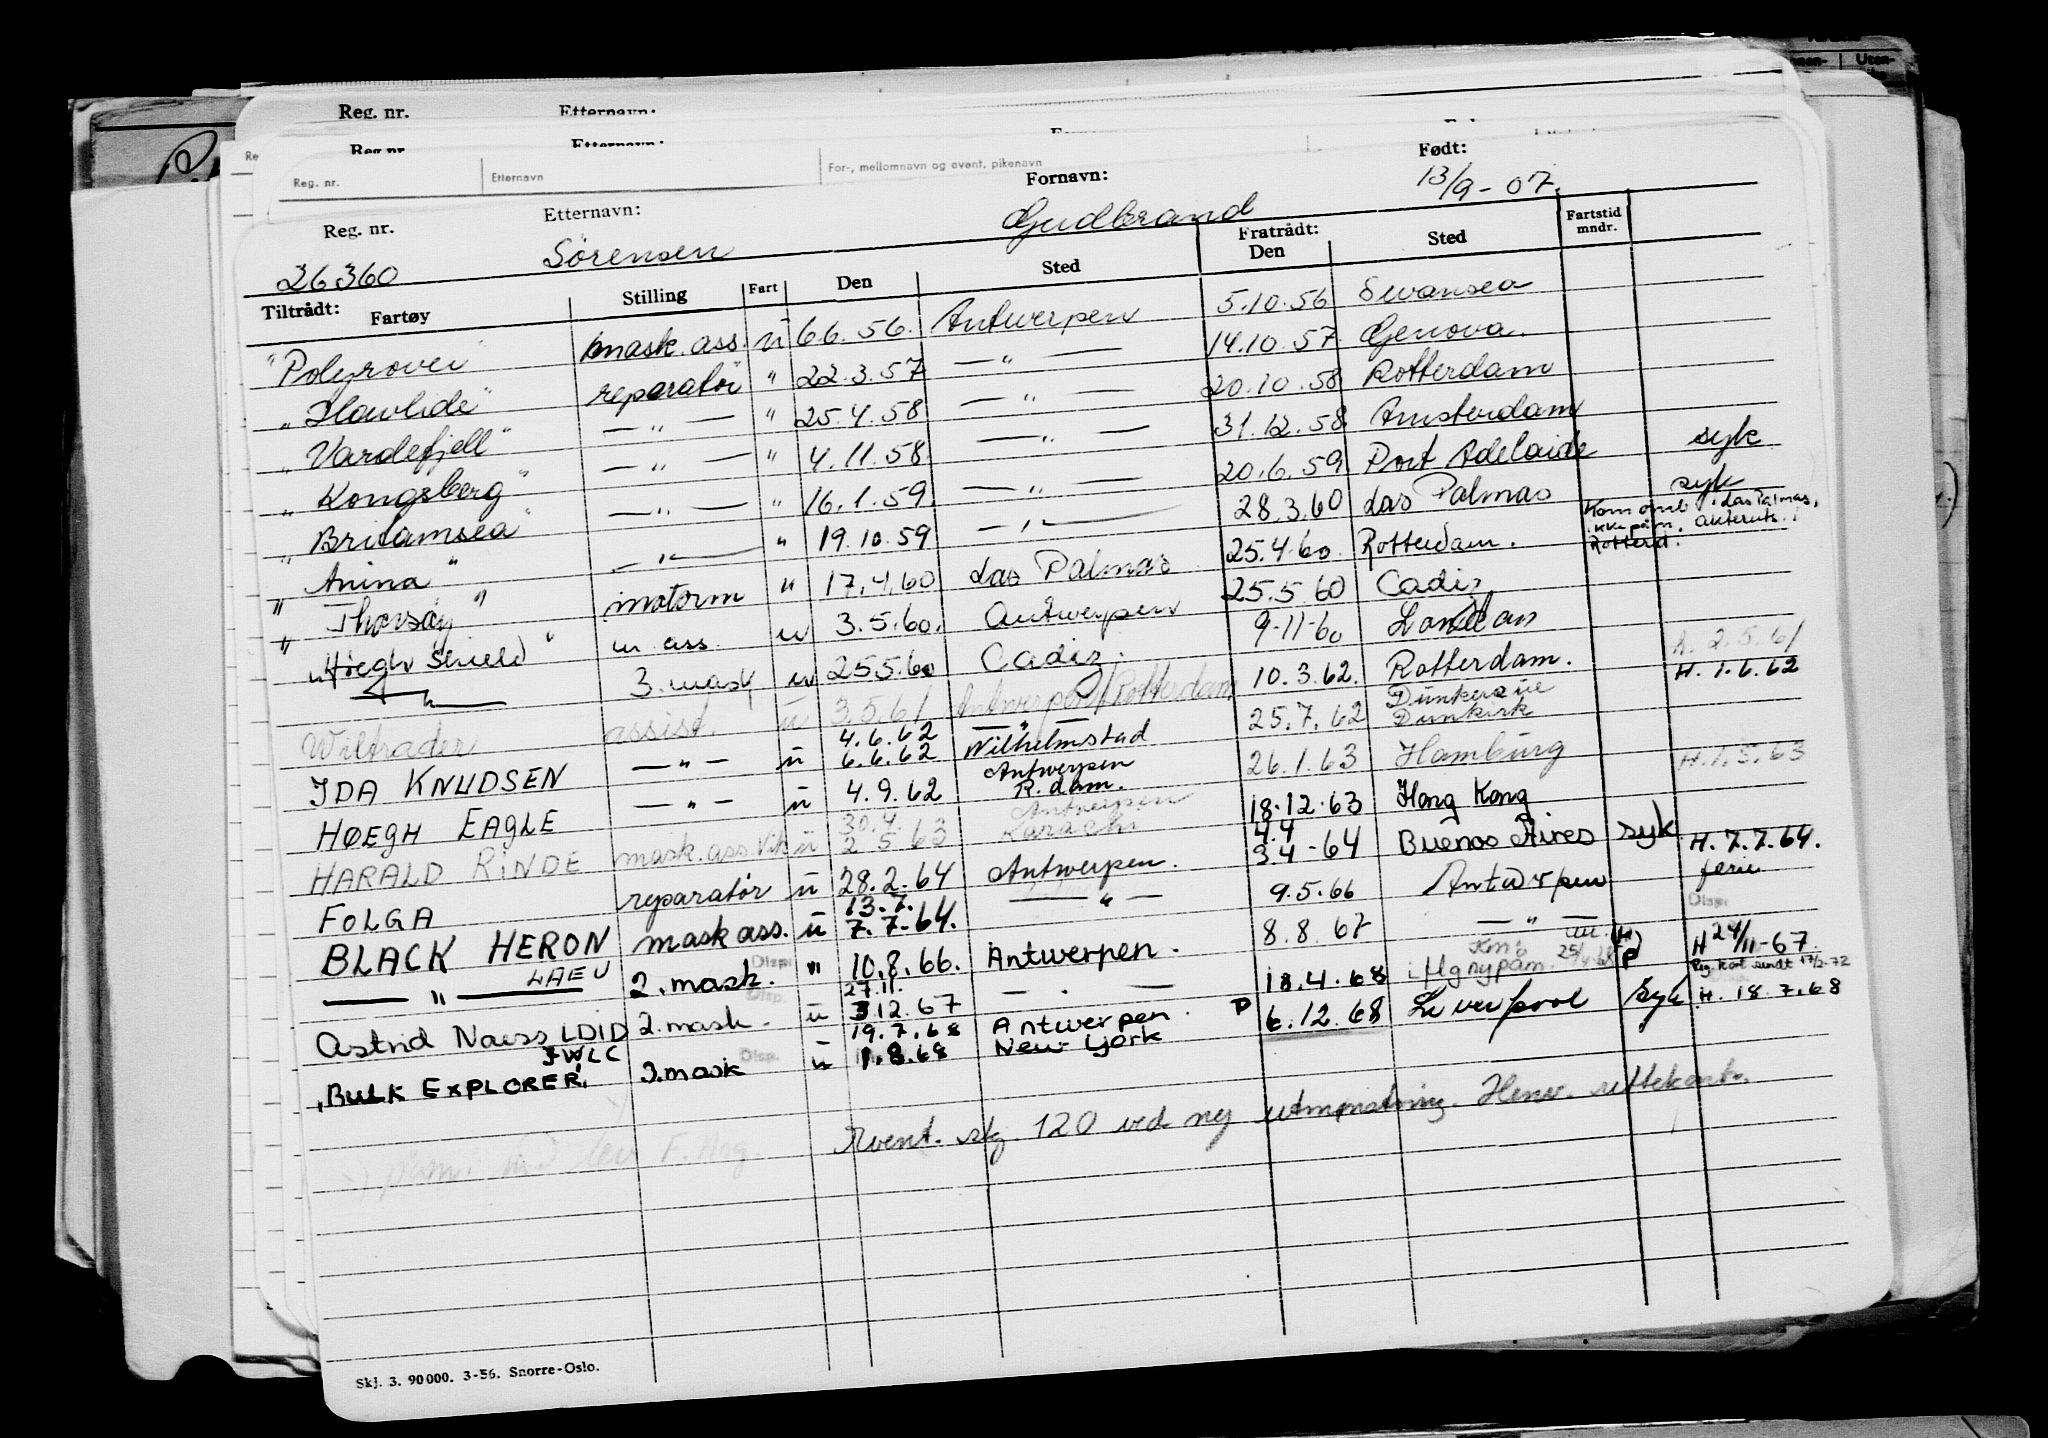 Reg. nr. Etternavn:
Reg. nr. Etternavn:
Reg. nr. Etternavn For-, mellomnavn og event. pikenavn
Reg. nr. Etternavn: Fornavn: Født:
26360 Sörensen Gudbrand 13/9-07.
Tiltrådt: Fratrådt: Fartstid mndr.
Fartøy Stilling Fart Den Sted Den Sted
"Polyrover" mask. ass. u 6.6.56. Antwerpen 5.10.56 Swansea
" reparatør " 22.3.57 — " — 14.10.57 Genova.
"Vardefjell" — " — " 25.4.58 — " — 20.10.58 Rotterdam
"Kongsberg" — " — " 4.11.58. — " — 31.12.58 Amsterdam
"Britamsea" — " — " 16.1.59. — " — 20.6.59 Port Adelaide syk
"Anina" — " — " 19.10.59 — " — 28.3.60 Las Palmas syk
"Thorsøy" motorm " 17.4.60 Las Palmas 25.4.60. Rotterdam. Kom omb i Las Palmas, ikke påm. Akteruts. i Rotterd.
"Høegh Shield" m. ass. u 3.5.60. Antwerpen 25.5.60 Cadiz
— " — 3. mask u 25.5.60 Cadiz. 9-11-60 London
Wiltrader assist. u 3.5.61 Antwerpen/Rotterdam 10.3.62. Rotterdam. h. 2.5.61
IDA KNUDSEN — " — u 4.6.62 6.6.62 — " — Wilhelmstad 25.7.62 Dunkerque Dunkirk H. 1.6.62
HØEGH EAGLE — " — u 4.9.62 Antwerpen R.dam. 26.1.63 Hamburg
HARALD RINDE mask. ass. Vik u 30.4. 2.5.63 Antwerpen Karachi 18.12.63 Hong Kong H. 1.5.63
FOLGA reparatør u 28.2.64 Antwerpen. 4.4 3.4-64 Buenos Aires syk
BLACK HERON mask ass. u 13.7. 7.7.64. — " — 9.5.66 Antwerpen H. 7.7.64. ferie
— " — LAEU 2. mask. Disp. " 10.8.66. Antwerpen. 8.8.67 — " — Disp.
Astrid Naess LDID 2. mask. Disp. u 27.11. 3.12.67 — . — 18.4.68 P H 24/11-67. Reg. kort sendt 17/2-72
BULK EXPLORER JWLC 3. mask Disp. u 19.7.68 1.8.68 Antwerpen. New York P 6.12.68 Liverpool syk H. 18.7.68
stg. 120 ved ny utmønstring. Henv. rettekort.
Skj. 3. 90000. 3-56. Snorre-Oslo.